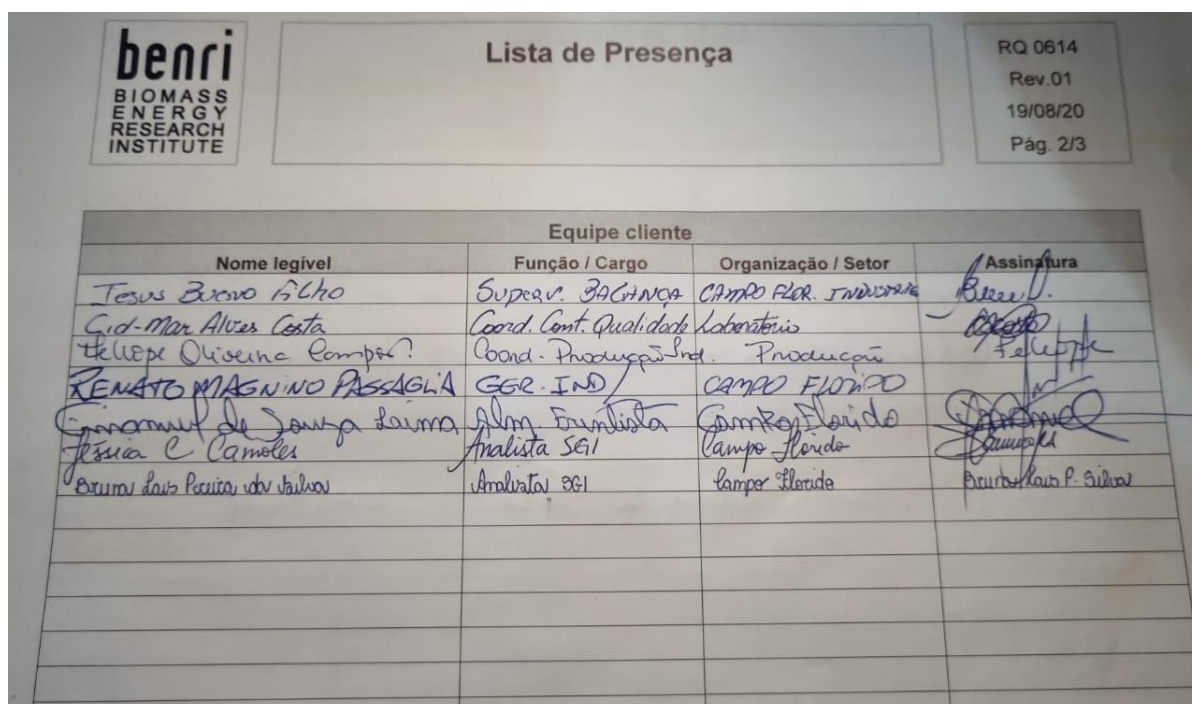 benri
BIOMASS
ENERGY
RESEARCH
INSTITUTE
Lista de Presença
RQ 0614
Rev.01
19/08/20
Pág. 2/3
Equipe cliente
Nome legível Função / Cargo Organização / Setor Assinatura
Jesus Bueno Filho Superv. BALANÇA CAMPO FLOR. INDUSTRIA
Cid-Mar Alves Costa Coord. Cont. Qualidade Laboratório
Fellipe Oliveira Campos Coord. Produção Ind. Produção Fellipe
RENATO MAGNINO PASSAGLIA GER. IND CAMPO FLORIDO
de Souza Campo Florido
Jéssica C Camoles Analista SGI Campo Florido
Bruna Lais Pereira da Silva Analista SGI Campo Florido Bruna Lais P. Silva